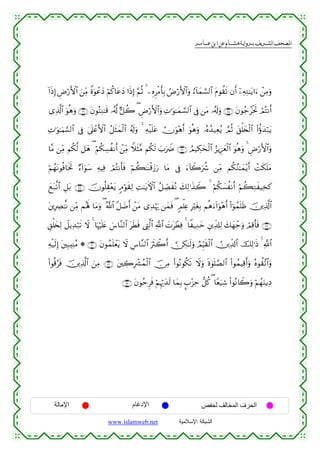 المصحف الشريف برواية هشام عن ابن عامر
وَمِنْ ءَايَٰتِهِۦٓ أَن تَقُومَ ٱلسَّمَآءُ وَٱلْأَرْضُ بِأَمْرِهِۦ ۚ ثُمَّ إِذَا دَعَاكُمْ دَعْوَةً مِّنَ ٱلْأَرْضِ إِذَآ
أَنتُمْ تَخْرُجُونَ ﴿٢٥﴾ وَلَهُۥ مَن فِى ٱلسَّمَٰوَٰتِ وَٱلْأَرْضِ ۖ كُلٌّ لَّهُۥ قَٰنِتُونَ ﴿٢٦﴾ وَهُوَ ٱلَّذِى
يَبْدَؤُا۟ ٱلْخَلْقَ ثُمَّ يُعِيدُهُۥ وَهُوَ أَهْوَنُ عَلَيْهِ ۚ وَلَهُ ٱلْمَثَلُ ٱلْأَعْلَىٰ فِى ٱلسَّمَٰوَٰتِ
وَٱلْأَرْضِ ۚ وَهُوَ ٱلْعَزِيزُ ٱلْحَكِيمُ ﴿٢٧﴾ ضَرَبَ لَكُم مَّثَلًا مِّنْ أَنفُسِكُمْ ۖ هَل لَّكُم مِّن مَّا
مَلَكَتْ أَيْمَٰنُكُم مِّن شُرَكَآءَ فِى مَا رَزَقْنَٰكُمْ فَأَنتُمْ فِيهِ سَوَآءٌ تَخَافُونَهُمْ
كَخِيفَتِكُمْ أَنفُسَكُمْ ۚ كَذَٰلِكَ نُفَصِّلُ ٱلْـَٔايَٰتِ لِقَوْمٍ يَعْقِلُونَ ﴿٢٨﴾ بَلِ ٱتَّبَعَ
ٱلَّذِينَ ظَلَمُوٓا۟ أَهْوَآءَهُم بِغَيْرِ عِلْمٍ ۖ فَمَن يَهْدِى مَنْ أَضَلَّ ٱللَّهُ ۖ وَمَا لَهُم مِّن نَّٰصِرِينَ
﴿٢٩﴾ فَأَقِمْ وَجْهَكَ لِلدِّينِ حَنِيفًا ۚ فِطْرَتَ ٱللَّهِ ٱلَّتِى فَطَرَ ٱلنَّاسَ عَلَيْهَا ۚ لَا تَبْدِيلَ لِخَلْقِ
ٱللَّهِ ۚ ذَٰلِكَ ٱلدِّينُ ٱلْقَيِّمُ وَلَٰكِنَّ أَكْثَرَ ٱلنَّاسِ لَا يَعْلَمُونَ ﴿٣٠﴾ * مُنِيبِينَ إِلَيْهِ
وَٱتَّقُوهُ وَأَقِيمُوا۟ ٱلصَّلَوٰةَ وَلَا تَكُونُوا۟ مِنَ ٱلْمُشْرِكِينَ ﴿٣١﴾ مِنَ ٱلَّذِينَ فَرَّقُوا۟
دِينَهُمْ وَكَانُوا۟ شِيَعًا ۖ كُلُّ حِزْبٍۭ بِمَا لَدَيْهِمْ فَرِحُونَ ﴿٣٢﴾
الحرف المخالف لحفص الإدغام الإمالة
الشبكة الإسلامية www.islamweb.net